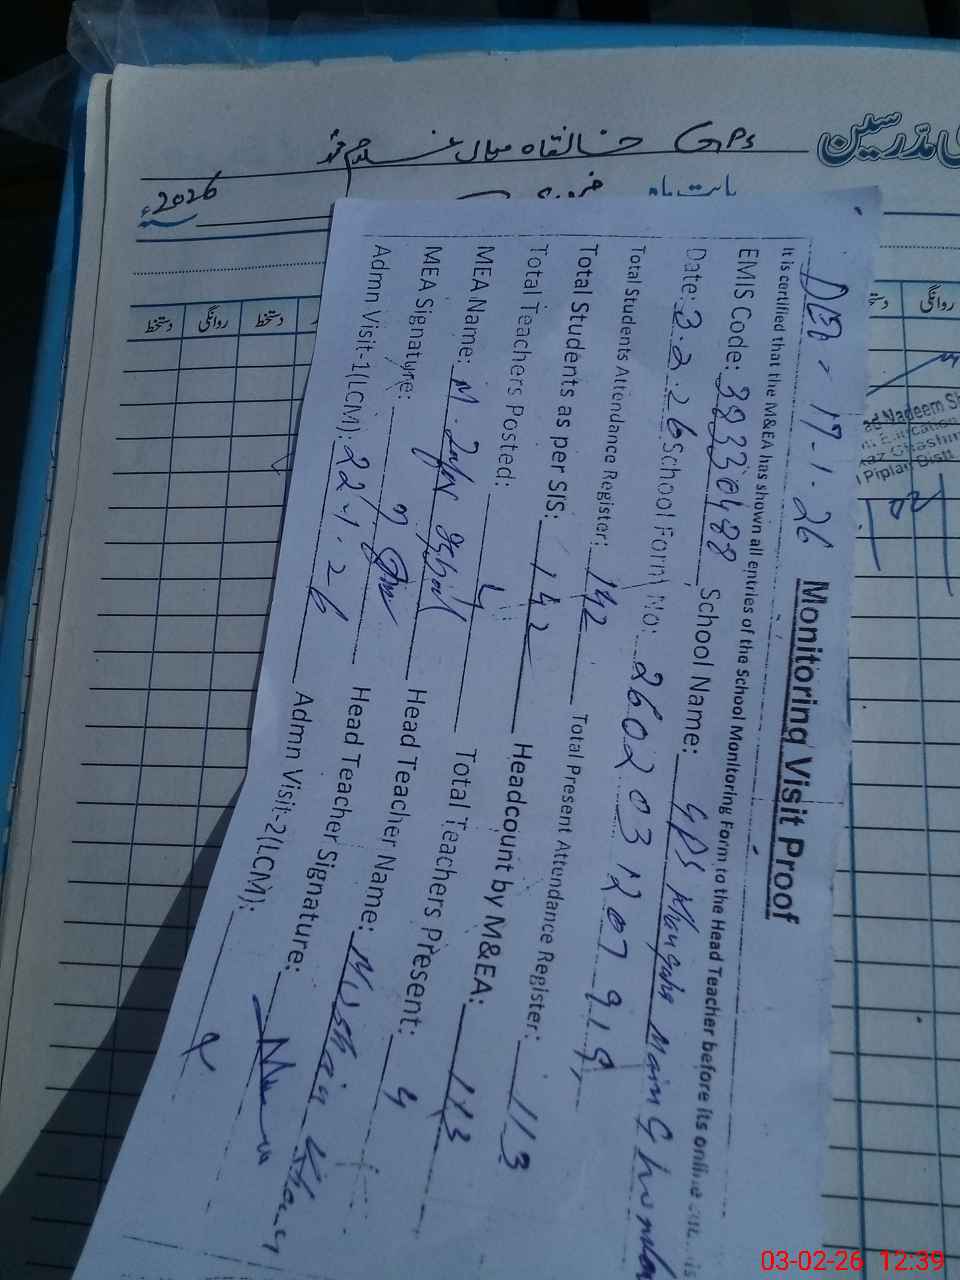 مدرسین
GPS خانقاہ میاں
بابت ماہ
2026ء
دستخط روانگی دستخط
روانگی
Nadeem
Education
Piplan Distt
17-1-26 Monitoring Visit Proof
It is certified that the M&EA has shown all entries of the School Monitoring Form to the Head Teacher before its online
EMIS Code: 38330488 School Name: GPS Khanqaha Miam
Date: 3.2.26 School Form No: 2602031207919
Total Students Attendance Register: 142 Total Present Attendance Register: 113
Total Students as per SIS: 142 Headcount by M&EA: 113
Total Teachers Posted: 4 Total Teachers Present: 4
MEA Name: M. Zafar Head Teacher Name: Mushtaq
MEA Signature: Head Teacher Signature:
Admn Visit-1(LCM): 22-1-26 Admn Visit-2(LCM): x
03-02-26 12:39